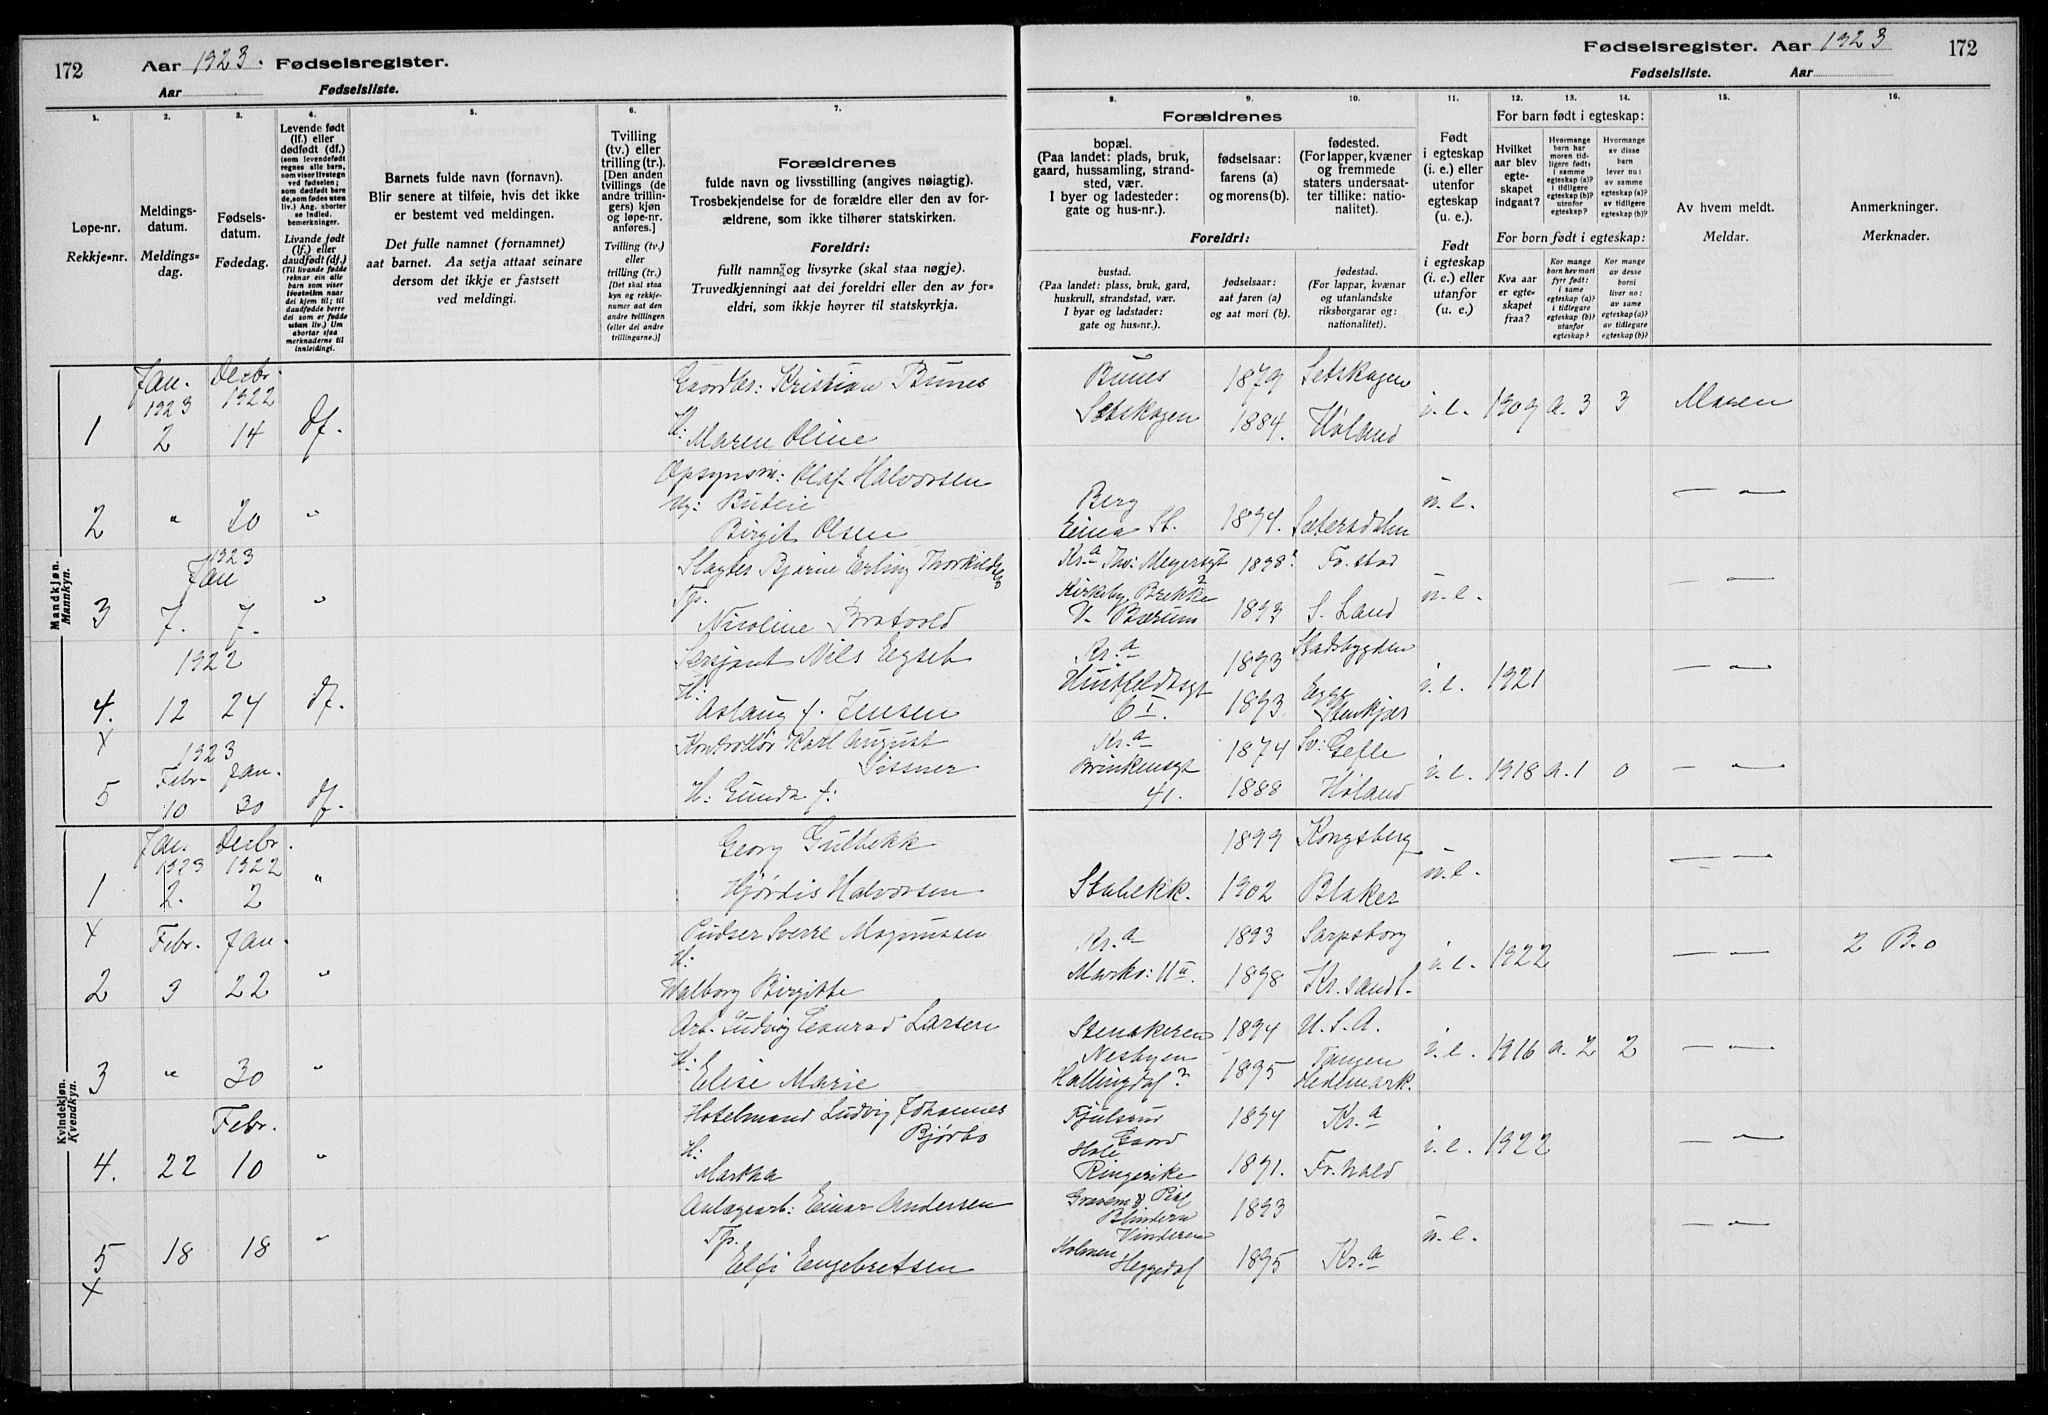 172 Aar 1923. Fødselsregister.
Aar Fødselsliste.
Fødselsregister. Aar 1923 172
Fødselsliste. Aar
1. 2. 3. 4. 5. 6. 7. 8. 9. 10. 11. 12. 13. 14. 15. 16.
Løpe-nr.
Rekkje-nr.
Meldings-
datum.
Meldings-
dag.
Fødsels-
datum.
Fødedag.
Levende født
(lf.) eller
dødfødt (df.)
(som levendefødt
regnes alle barn,
som viser livstegn
ved fødselen;
som dødfødt bare
de, som fødes uten
liv.) Ang. aborter
se indled.
bemerkninger.
Livande født
(lf.) eller
daudfødt (df.)
(Til livande fødde
reknar ein alle
barn som viser
livsteikn naar
dei kjem til; til
daudfødde berre
dei som er fødde
utan liv.) Um
abortar sjaa
merknaderne til
innleidingi.
Barnets fulde navn (fornavn).
Blir senere at tilføie, hvis det ikke
er bestemt ved meldingen.
Det fulle namnet (fornamnet)
aat barnet. Aa setja attaat seinare
dersom det ikkje er fastsett
ved meldingi.
Tvilling
(tv.) eller
trilling (tr.).
[Den anden
tvillings (de
andre trillin-
gers) kjøn
og løpe-nr.
anføres.]
Tvilling (tv.)
eller
trilling (tr.)
[Det skal staa
kyn og rekkje-
numer aat den
andre tvillingen
(eller dei andre
trillingarne.)]
Forældrenes
fulde navn og livsstilling (angives nøiagtig).
Trosbekjendelse for de forældre eller den av for-
ældrene, som ikke tilhører statskirken.
Foreldri:
fullt namn og livsyrke (skal staa nøgje).
Truvedkjenningi aat dei foreldri eller den av for-
eldri, som ikkje høyrer til statskyrkja.
Forældrenes
bopæl.
(Paa landet: plads, bruk,
gaard, hussamling, strand-
sted, vær.
I byer og ladesteder:
gate og hus-nr.).
fødselsaar:
farens (a)
og morens (b).
fødested.
(For lapper, kvæner
og fremmede
staters undersaat-
ter tillike: natio-
nalitet).
Foreldri:
bustad.
(Paa landet: plass, bruk, gard,
huskrull, strandstad, vær.
I byar og ladstader:
gate og hus-nr.).
fødselsaar:
aat faren (a)
og aat mori (b).
fødestad.
(For lappar, kvænar
og utanlandske
riksborgarar og:
nationalitet).
Født
i egteskap
(i. e.) eller
utenfor
egteskap
(u. e.).
Født
i egteskap
(i. e.) eller
utanfor
(u. e.)
For barn født i egteskap:
Hvilket
aar blev
egte-
skapet
indgaat?
Hvormange
barn har
moren tid-
ligere født:
i samme
egteskap (a)?
i tidligere
egteskap (b)?
utenfor
egteskap?
Hvormange
av disse
barn
lever nu:
av samme
egteskap (a)?
av tidligere
egteskap (b)?
For born født i egteskap:
Kva aar
er egte-
skapet
fraa?
Kor mange
born hev mori
fyrr født:
i same
egteskap (a)?
i tidlegare
egteskap (b)?
utanfor
egteskap?
Kor mange
av desse
borni
liver no:
av same
egteskap (a)?
av tidlegare
egteskap (b)?
Av hvem meldt.
Meldar.
Anmerkninger.
Merknader.
Mandkjøn.
Mannkyn.
Jan. Decbr.
1923 1922
1 2 14 df.
Kristian Bunes Bunes 1879 Setskogen
H: Maren Oline Setskogen 1884. Høland i.e. 1909 a. 3 3 Maren
Opsynsm: Olaf Halvorsen
2 " 20 "
Birgit Olsen Berg
Eina St. 1894. Sætersdalen u.e. — " —
1923
Jan
3 7. 7. "
Slagter Bjarne Erling Thorkildsen Kr.a Thv: Meyersgt 1898? Fr.stad
Tp. Kirkeby Brekke?
Nicoline Bratvold V. Bærum 1893 S. Land u.e. — " —
1922
4. 12 24 df.
Sersjant Nils Egseb Kr.a 1893 Stadsbygden
H: Huitfeldtsgt
Aslaug f. Jensen 6 I. 1893 Egge
Stenkjær i.e. 1921 — " —
x
1923
Febr. Jan.
5 10 30 df.
Kontrollør Karl August
Sissner Kr.a 1874 Sv: Gefle
H: Gunda f: Brinkensgt
41. 1888 Høland i.e. 1918 a. 1 0 — " —
Kvindekjøn.
Kvendkyn.
Jan. Decbr.
1923 1922
1 2. 2 "
Georg Gulbekk 1899 Kongsberg
Hjørdis Halvorsen Stabekk. 1902 Blaker u.e. — " —
x Febr. Jan.
2 3 22 "
Pudser Sverre Magnussen Kr.a 1893 Sarpsborg
H:
Walborg Birgitte Markv: 11 u. 1898 Kr.sand. i.e. 1922 — " — 2 B.0
3 " 30 "
Arb. Ludvig Conrad Larsen Stenskeren 1894 U.S.A.
H: Nesbyen
Elise Marie Hallingdal? 1895 Tangen
Hedemark. i.e. 1916 a. 2 2 — " —
Febr.
4. 22 10 "
Hotelmand Ludvig Johannes
Bjørbo Fjulsrud
Gaard 1894 Kr.a
H: Hole
Martha Ringerike 1891. Fr.hald i.e. 1922 — " —
5 18 18 "
Anlægsarb: Einar Andersen
Blindern 1893
Tp. Vinderen
Elfi Engebretsen Holmen
Heggedal 1895 Kr.a u.e. — " —
x